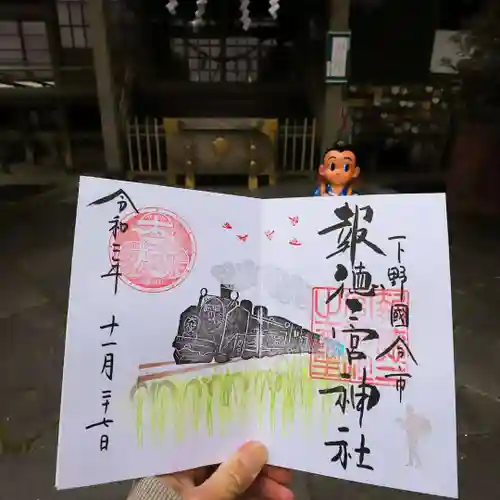 下野國今市
報徳二宮神社
令和三年
十一月二十七日